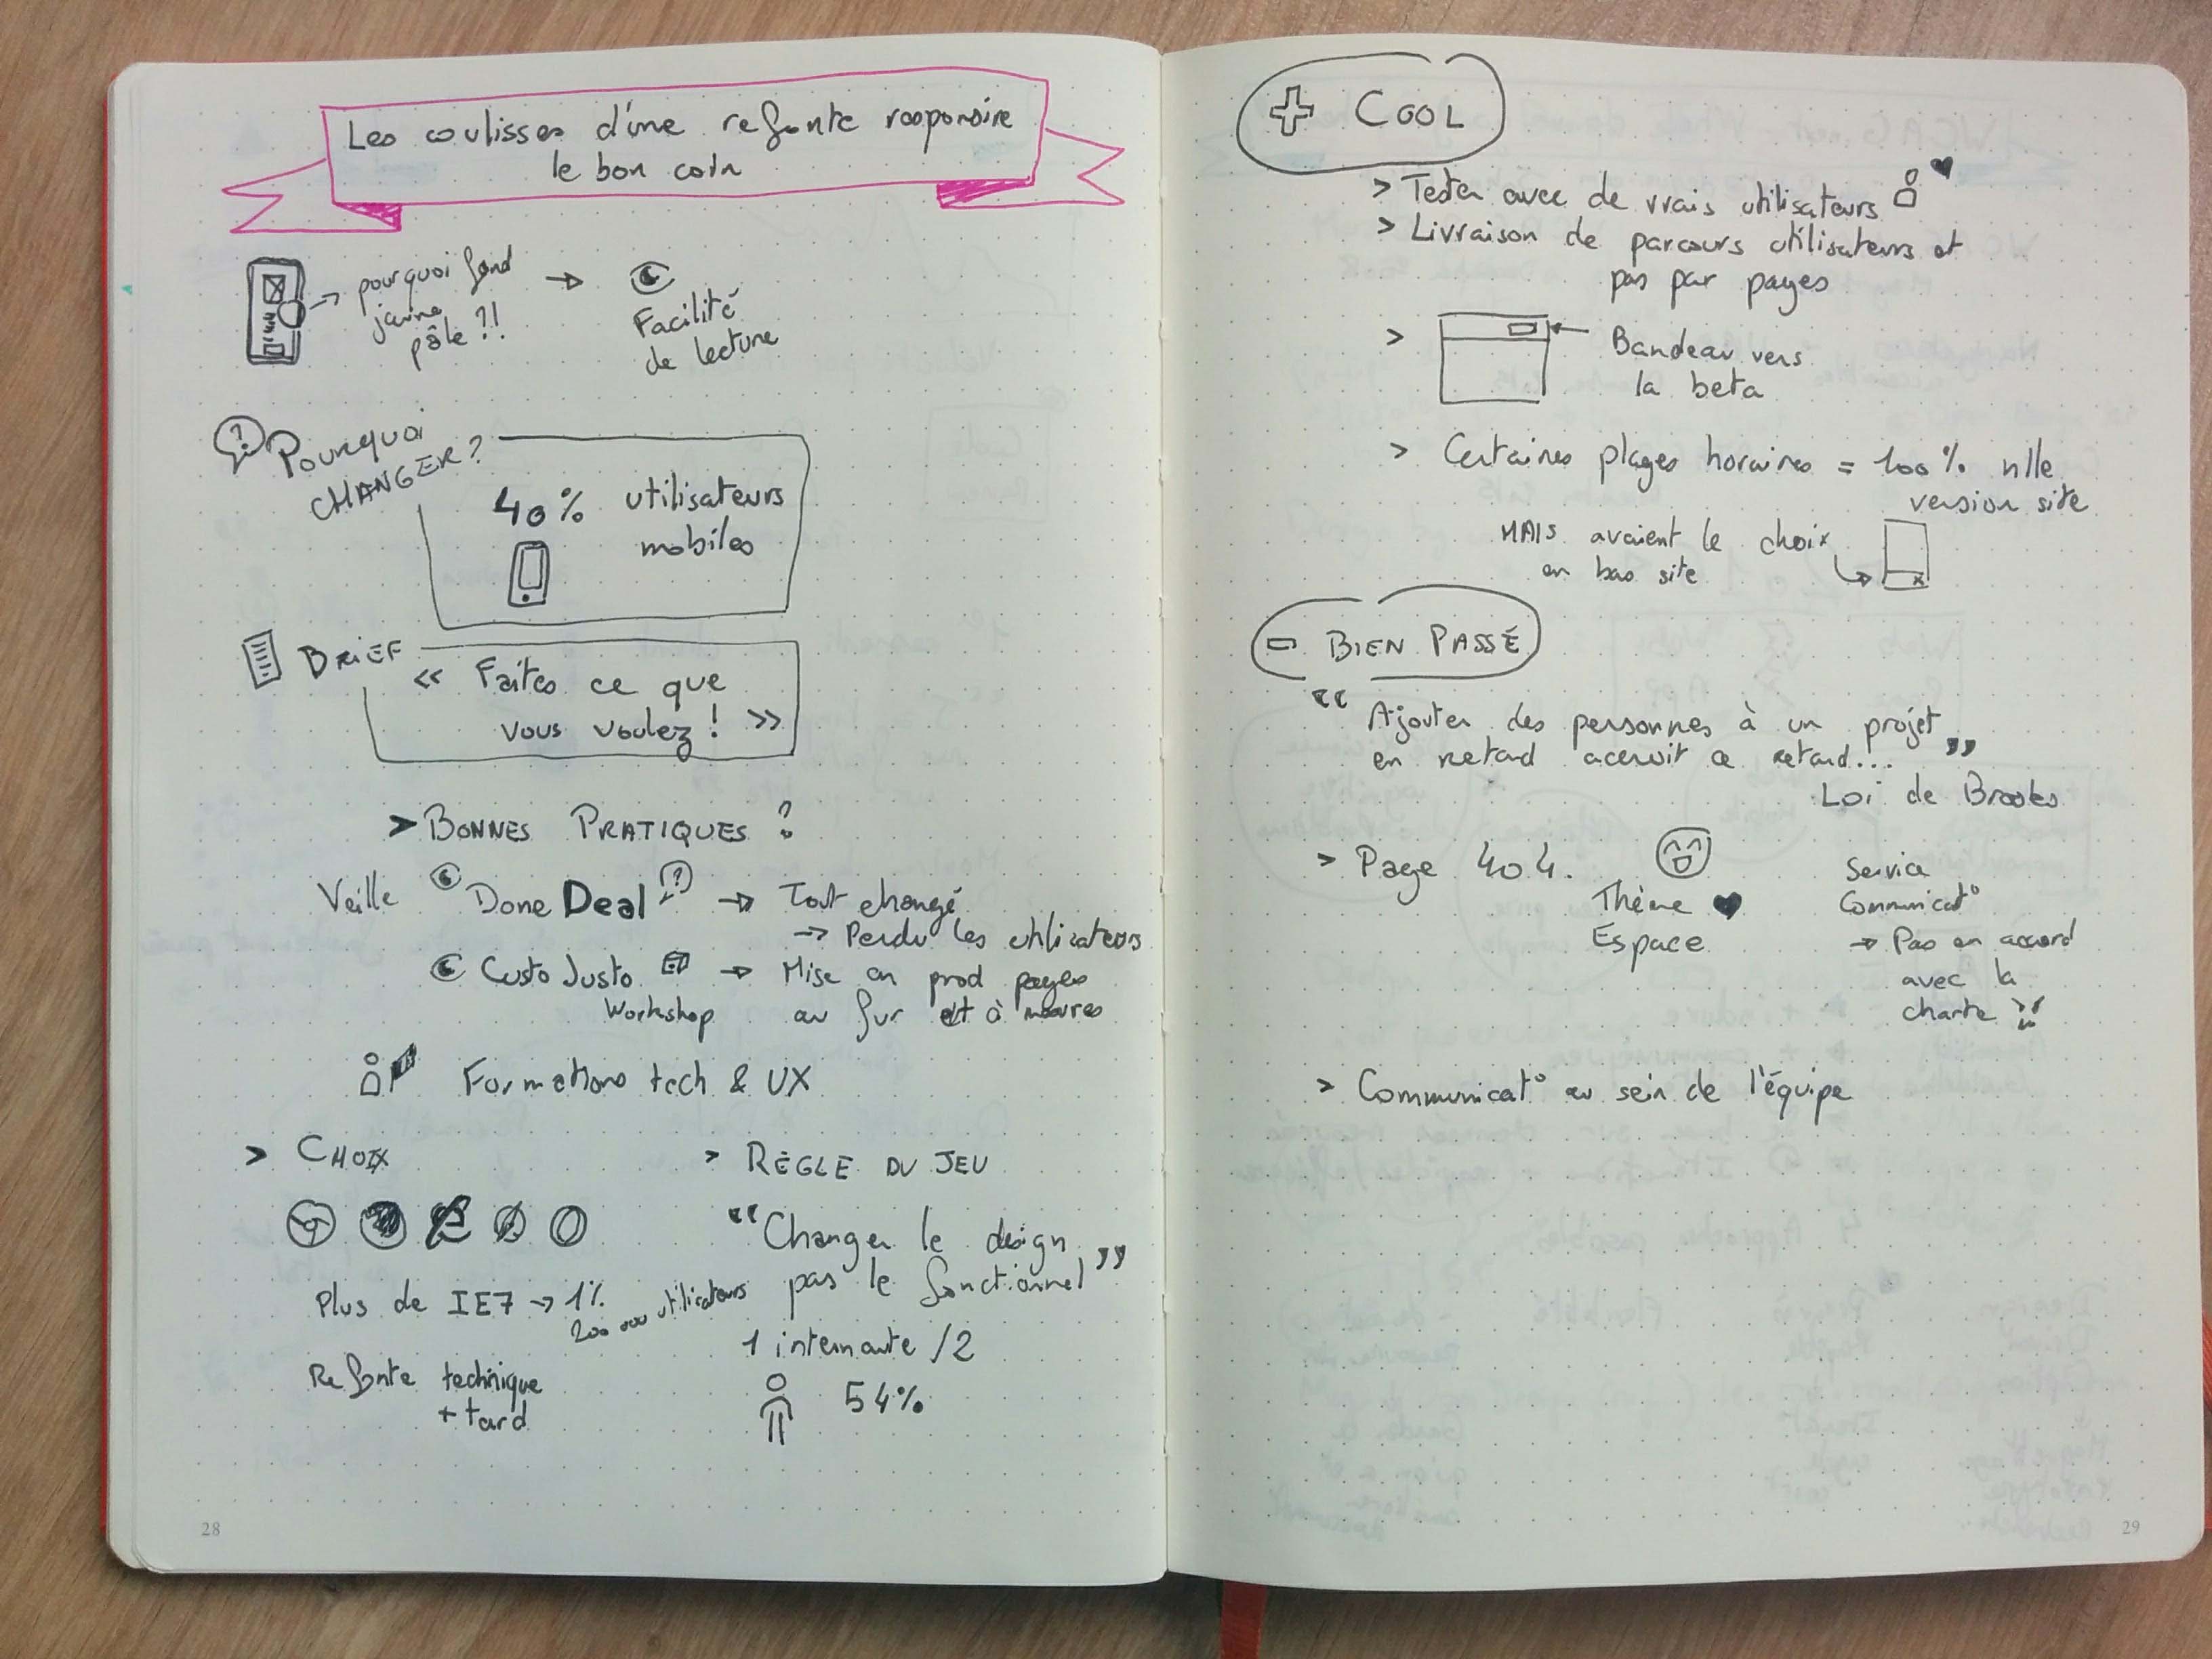 Les coulisses d'une refonte responsive
le bon coin
pourquoi fond
jaune
pâle ?!
Facilité
de lecture
?
Pourquoi
CHANGER ?
40% utilisateurs
mobiles
BRIEF
« Faites ce que
vous voulez ! »
> BONNES PRATIQUES ?
Veille Done Deal ? → Tout changé
→ Perdu les utilisateurs
Custo Justo → Mise en prod pages
Workshop au fur et à mesures
Formations tech & UX
> CHOIX
Plus de IE7 → 1%
200 000 utilisateurs
Refonte technique
+ tard
> RÈGLE DU JEU
“ Changer le design
pas le fonctionnel ”
1 internaute /2
54%
28
+ COOL
> Tester avec de vrais utilisateurs
> Livraison de parcours utilisateurs et
pas par pages
> Bandeau vers
la beta
> Certaines plages horaires = 100% nlle
version site
MAIS avaient le choix
en bas site
- BIEN PASSÉ
“ Ajouter des personnes à un projet
en retard accroit ce retard... ”
Loi de Brooks
> Page 404.
Thème ♥
Espace
Service
Communicat°
→ Pas en accord
avec la
charte
> Communicat° au sein de l'équipe
29